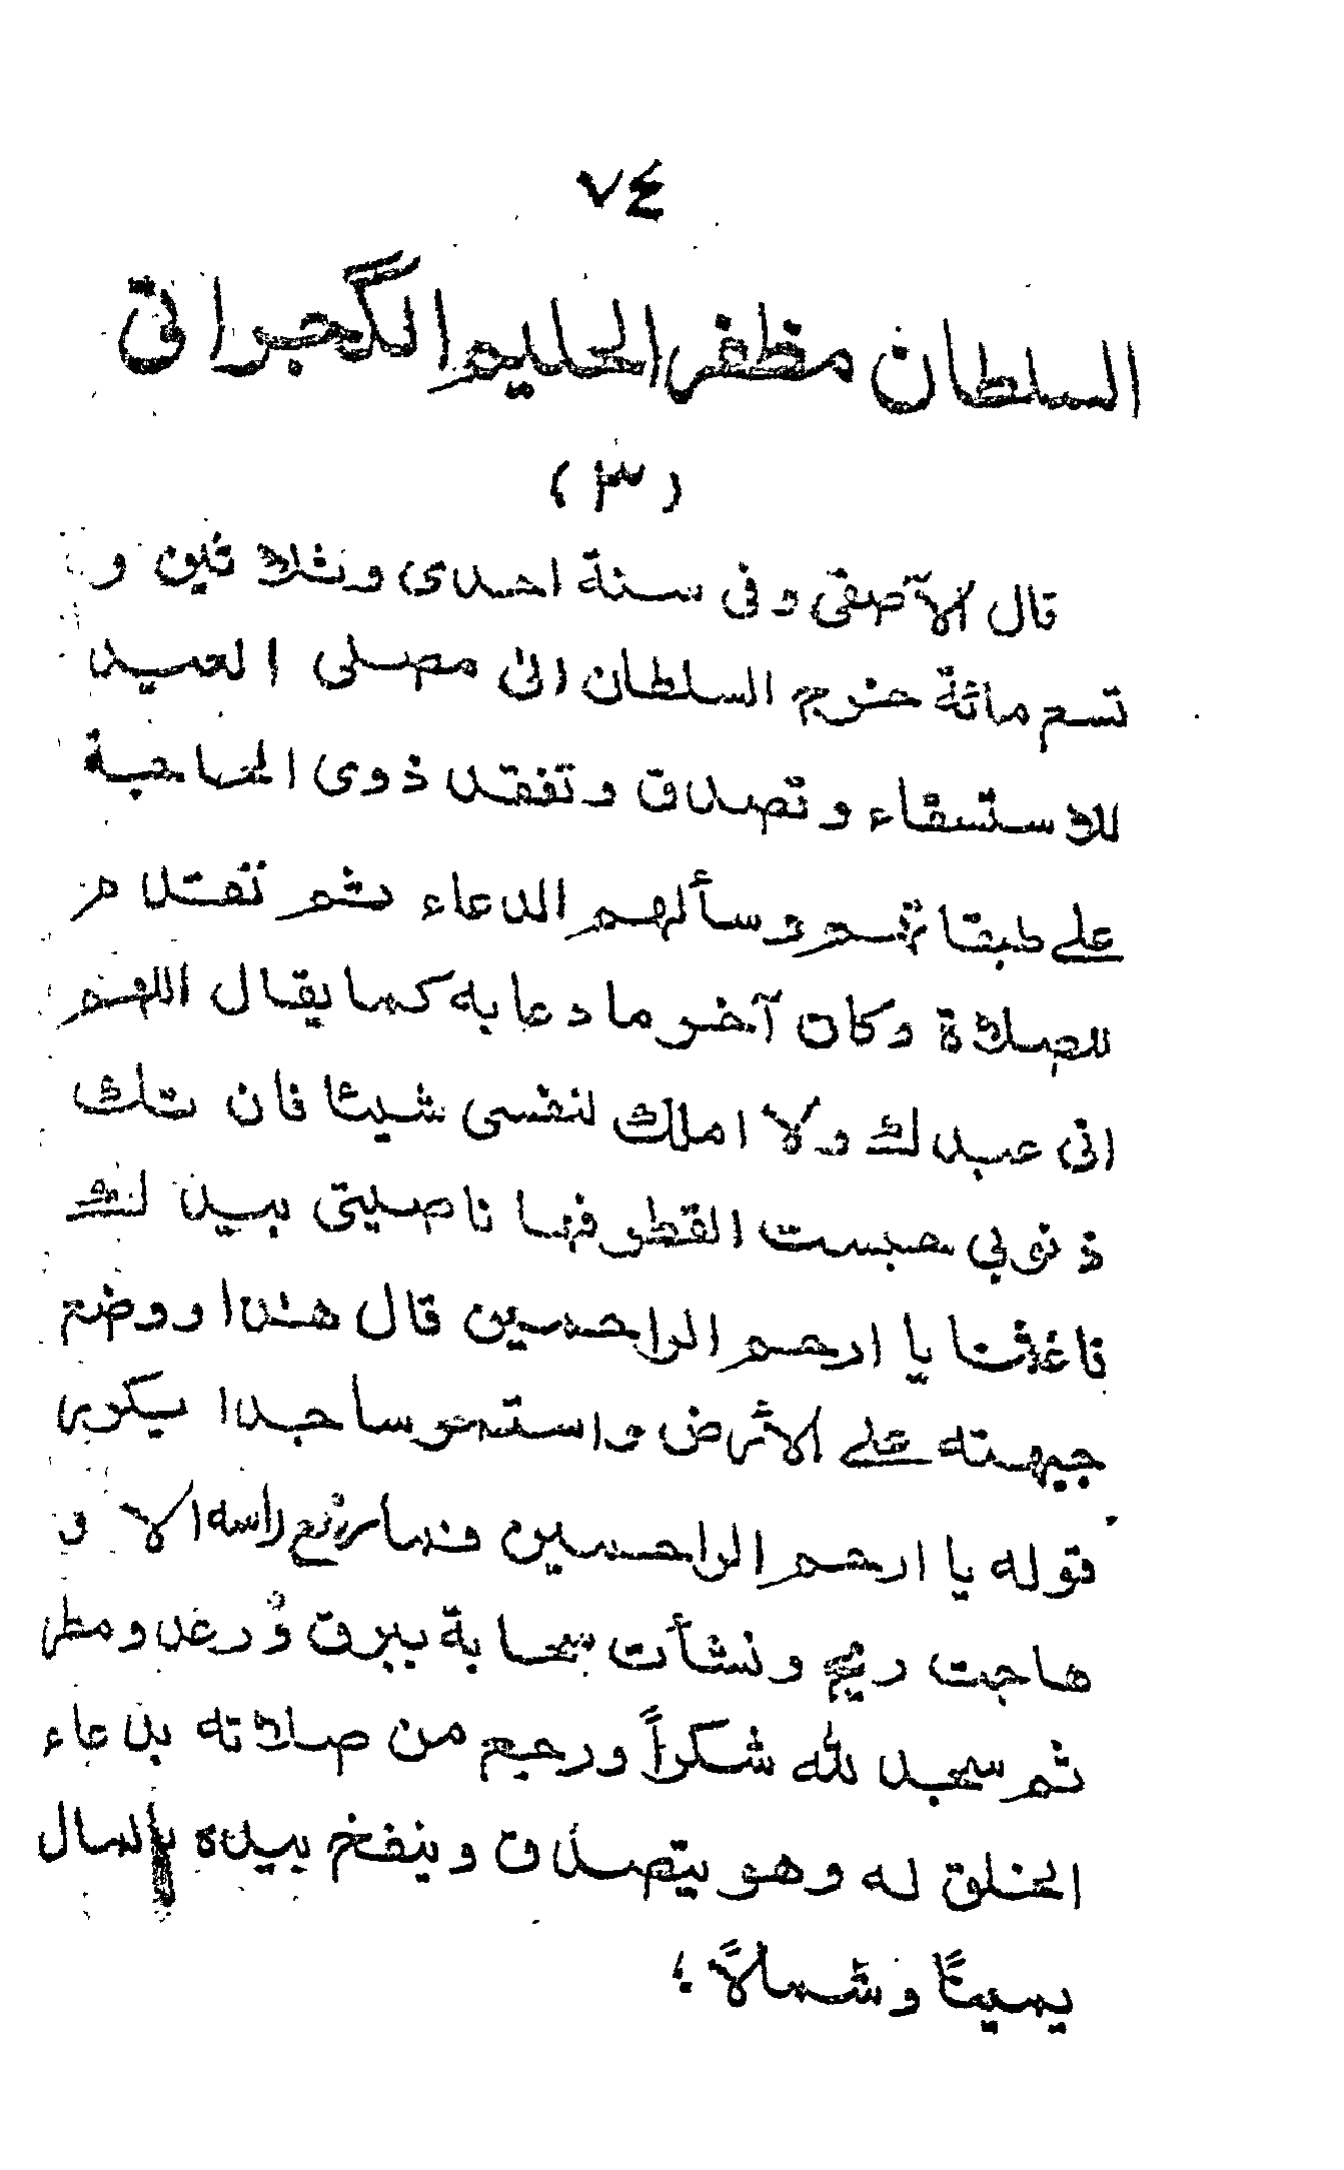 ٧٤
السلطان مظفر الحليم الگجراتي
(٣)
قال الآصفى وفى سنة احدى وثلاثين و
تسع مائة خرج السلطان الى مصلى العيد
للاستسقاء وتصدق وتفقد ذوى الحاجة
على طبقاتهم وسألهم الدعاء ثم تقدم
للصلاة وكان آخر ما دعا به كما يقال اللهم
انى عبدك ولا املك لنفسى شيئا فان تك
ذنوبي حبست القطر فها ناصيتى بيدك
فاغثنا يا ارحم الراحمين قال هذا ووضع
جبهته على الأرض واستمر ساجدا يكرر
قوله يا ارحم الراحمين فما رفع راسه الا و
هاجت ريح ونشأت سحابة ببرق ورعد ومطر
ثم سجد لله شكراً ورجع من صلاته بدعاء
الخلق له وهو يتصدق وينفح بيده بالمال
يمينًا وشمالاً ؛